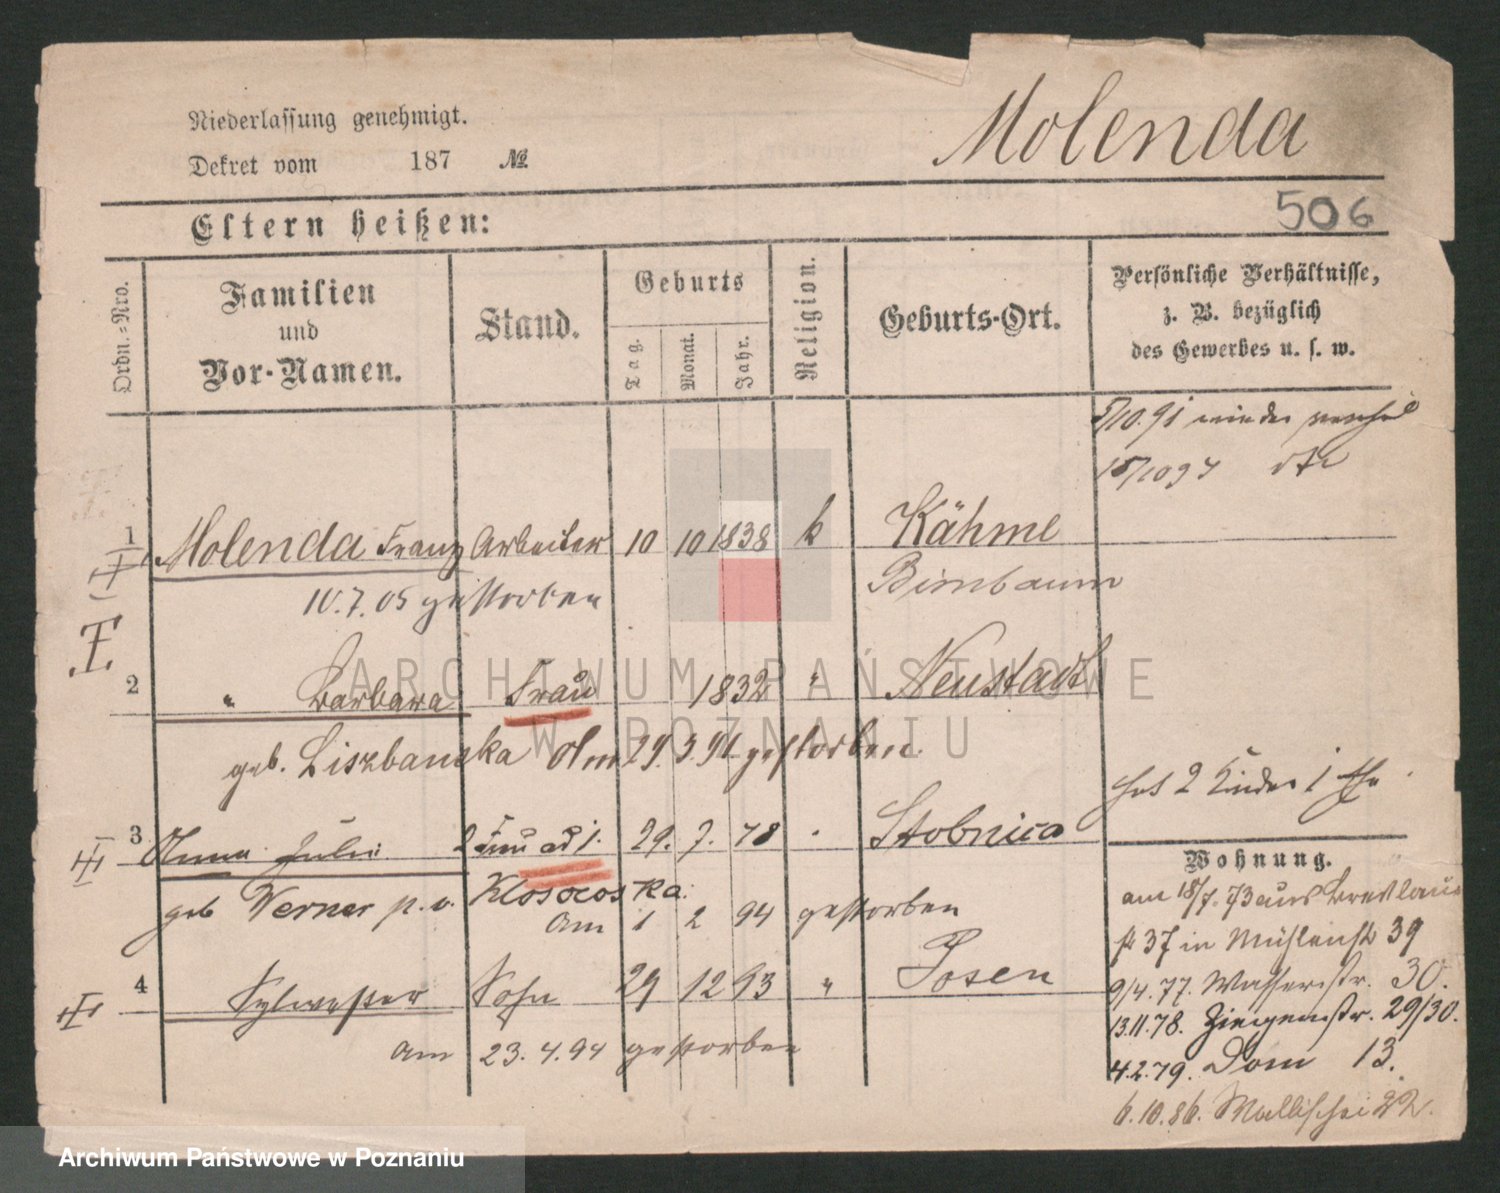 Niederlassung genehmigt.
Dekret vom 187 №
Molenda
506
Eltern heißen:
Ordn.-Nro.
Familien
und
Vor-Namen.
Stand.
Geburts
Tag.
Monat.
Jahr.
Religion.
Geburts-Ort.
Persönliche Verhältnisse,
z. B. bezüglich
des Gewerbes u. s. w.
5/10.91 wieder
15/10 97
1 Molenda Franz Arbeiter 10 10 1838 k Kähme
Birnbaum
10.7.05 gestorben
I.
2 " Barbara Frau 1832 " Neustadt
geb. Liszbanska Am 29.3.91 gestorben.
hat 2 Kinder 1
III 3 Anna Julie 2 Frau ad 1. 29. 7. 78 Stobnica
geb Werner p. v. Klosocoska.
Am 1 2 94 gestorben
4 Sylwester Sohn 29 12 93 " Posen
am 23.4.94 gestorben
Wohnung.
am 18/7. 73 aus Breslau
37 in Mühlenstr 39
9/4.77. Wasserstr. 30.
13.11.78. Ziegenstr. 29/30.
4.2.79. Dom 13.
6.10.86. Wallischei 22.
ARCHIWUM PAŃSTWOWE
W POZNANIU
Archiwum Państwowe w Poznaniu